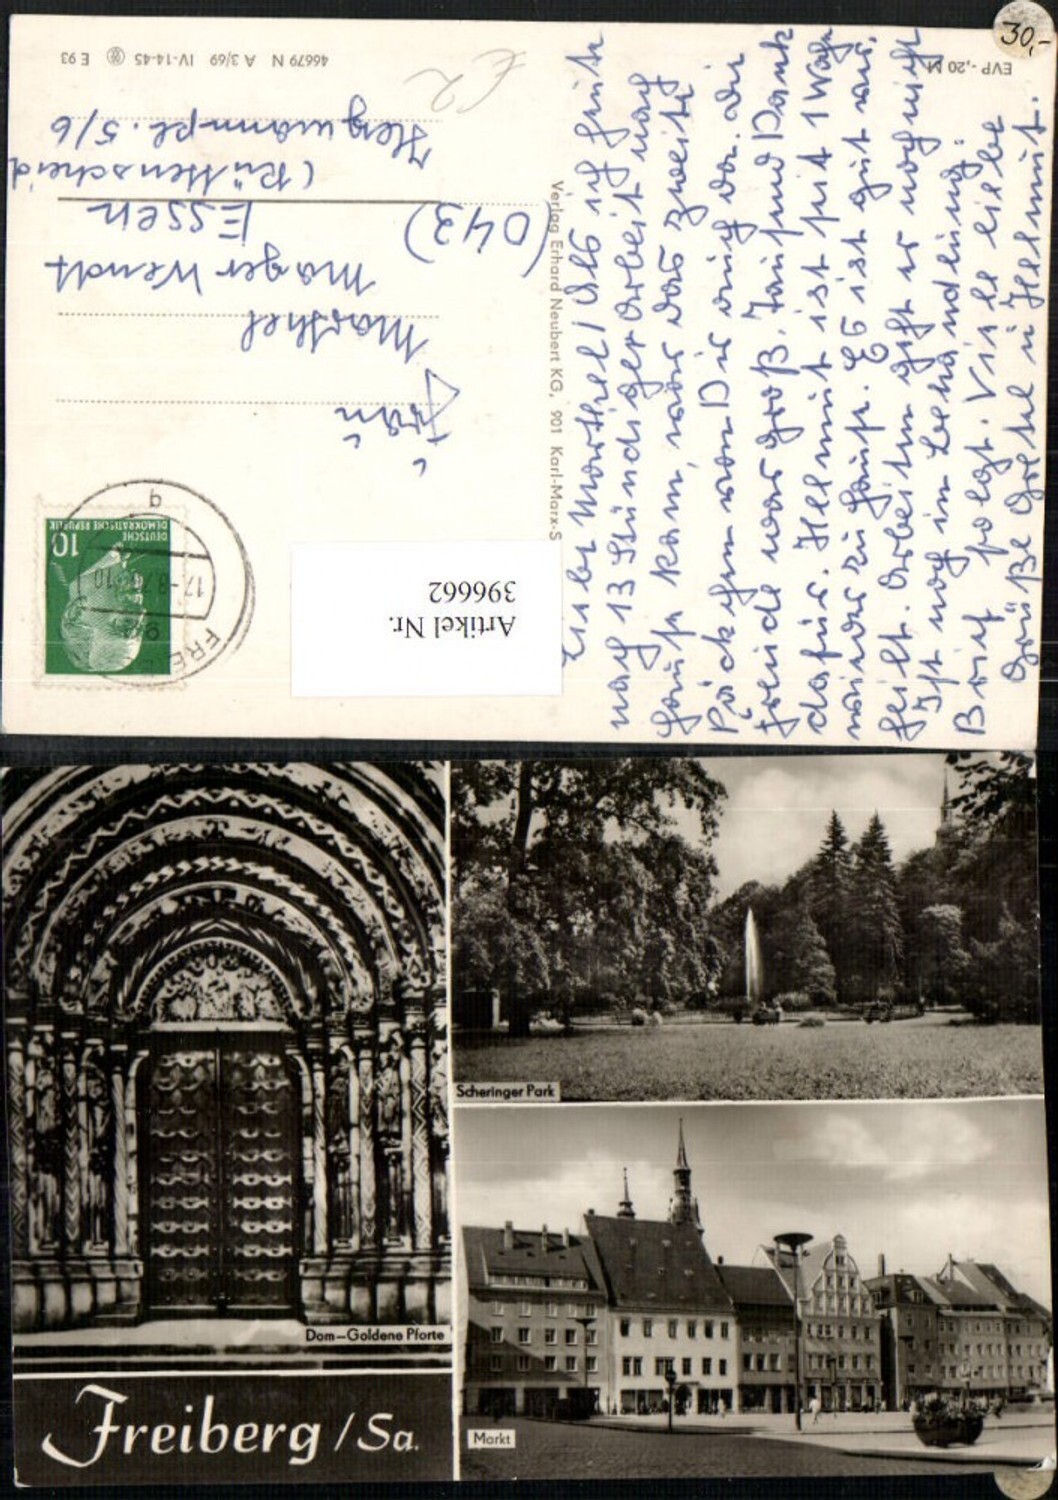 30,-
EVP -,20 M
46679 N A 3/69 IV-14-45 E 93
€ 2
DEUTSCHE
DEMOKRATISCHE REPUBLIK
10
FRE
Frau
Marthel
Mager Wendt
(043) Essen
(Rüttenscheid
5/6
Verlag Erhard Neubert KG, 901 Karl-Marx-S
Artikel Nr.
396662
Liebe Marthel! Als ich heute
nach 13 Stündiger Arbeit nach
Hause kam, war das zweite
Päckchen von Dir da. Die
Freude war groß. Tausend Dank
dafür. Helmut ist seit 1 Woche
wieder zu Hause. Es ist gut aus-
geheilt. Arbeiten geht er noch nicht
Ist noch in Behandlung.
Brief folgt. Viele liebe
Grüße Gretel u Helmut.
Dom-Goldene Pforte
Scheringer Park
Freiberg / Sa.
Markt